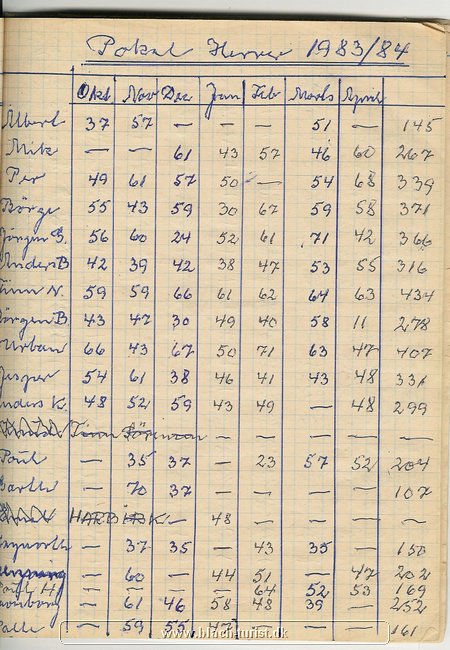 Pokal Herrer 1983/84
Okt Nov Dec Jan Feb Marts April
Albert 37 57 — — — 51 — 145
Mik — — 61 43 57 46 60 267
Per 49 61 57 50 — 54 68 339
Börge 55 43 59 30 67 59 58 371
Jörgen S. 56 60 24 52 61 71 42 366
Anders B 42 39 42 38 47 53 55 316
Finn N. 59 59 66 61 62 64 63 434
Jörgen B. 43 47 30 49 40 58 11 278
Urban 66 43 67 50 71 63 47 407
Jesper 54 61 38 46 41 43 48 331
Anders K. 48 52 59 43 49 — 48 299
— — — — —
Poul — 35 37 — 23 57 52 204
— 70 37 — — — — 107
— 48 — — — —
— 37 35 — 43 35 — 150
— 60 — 44 51 — 47 202
Poul H — — — — 64 52 53 169
— 61 46 58 48 39 — 252
Palle — 59 55 47 — — — 161
www.blachqurist.dk